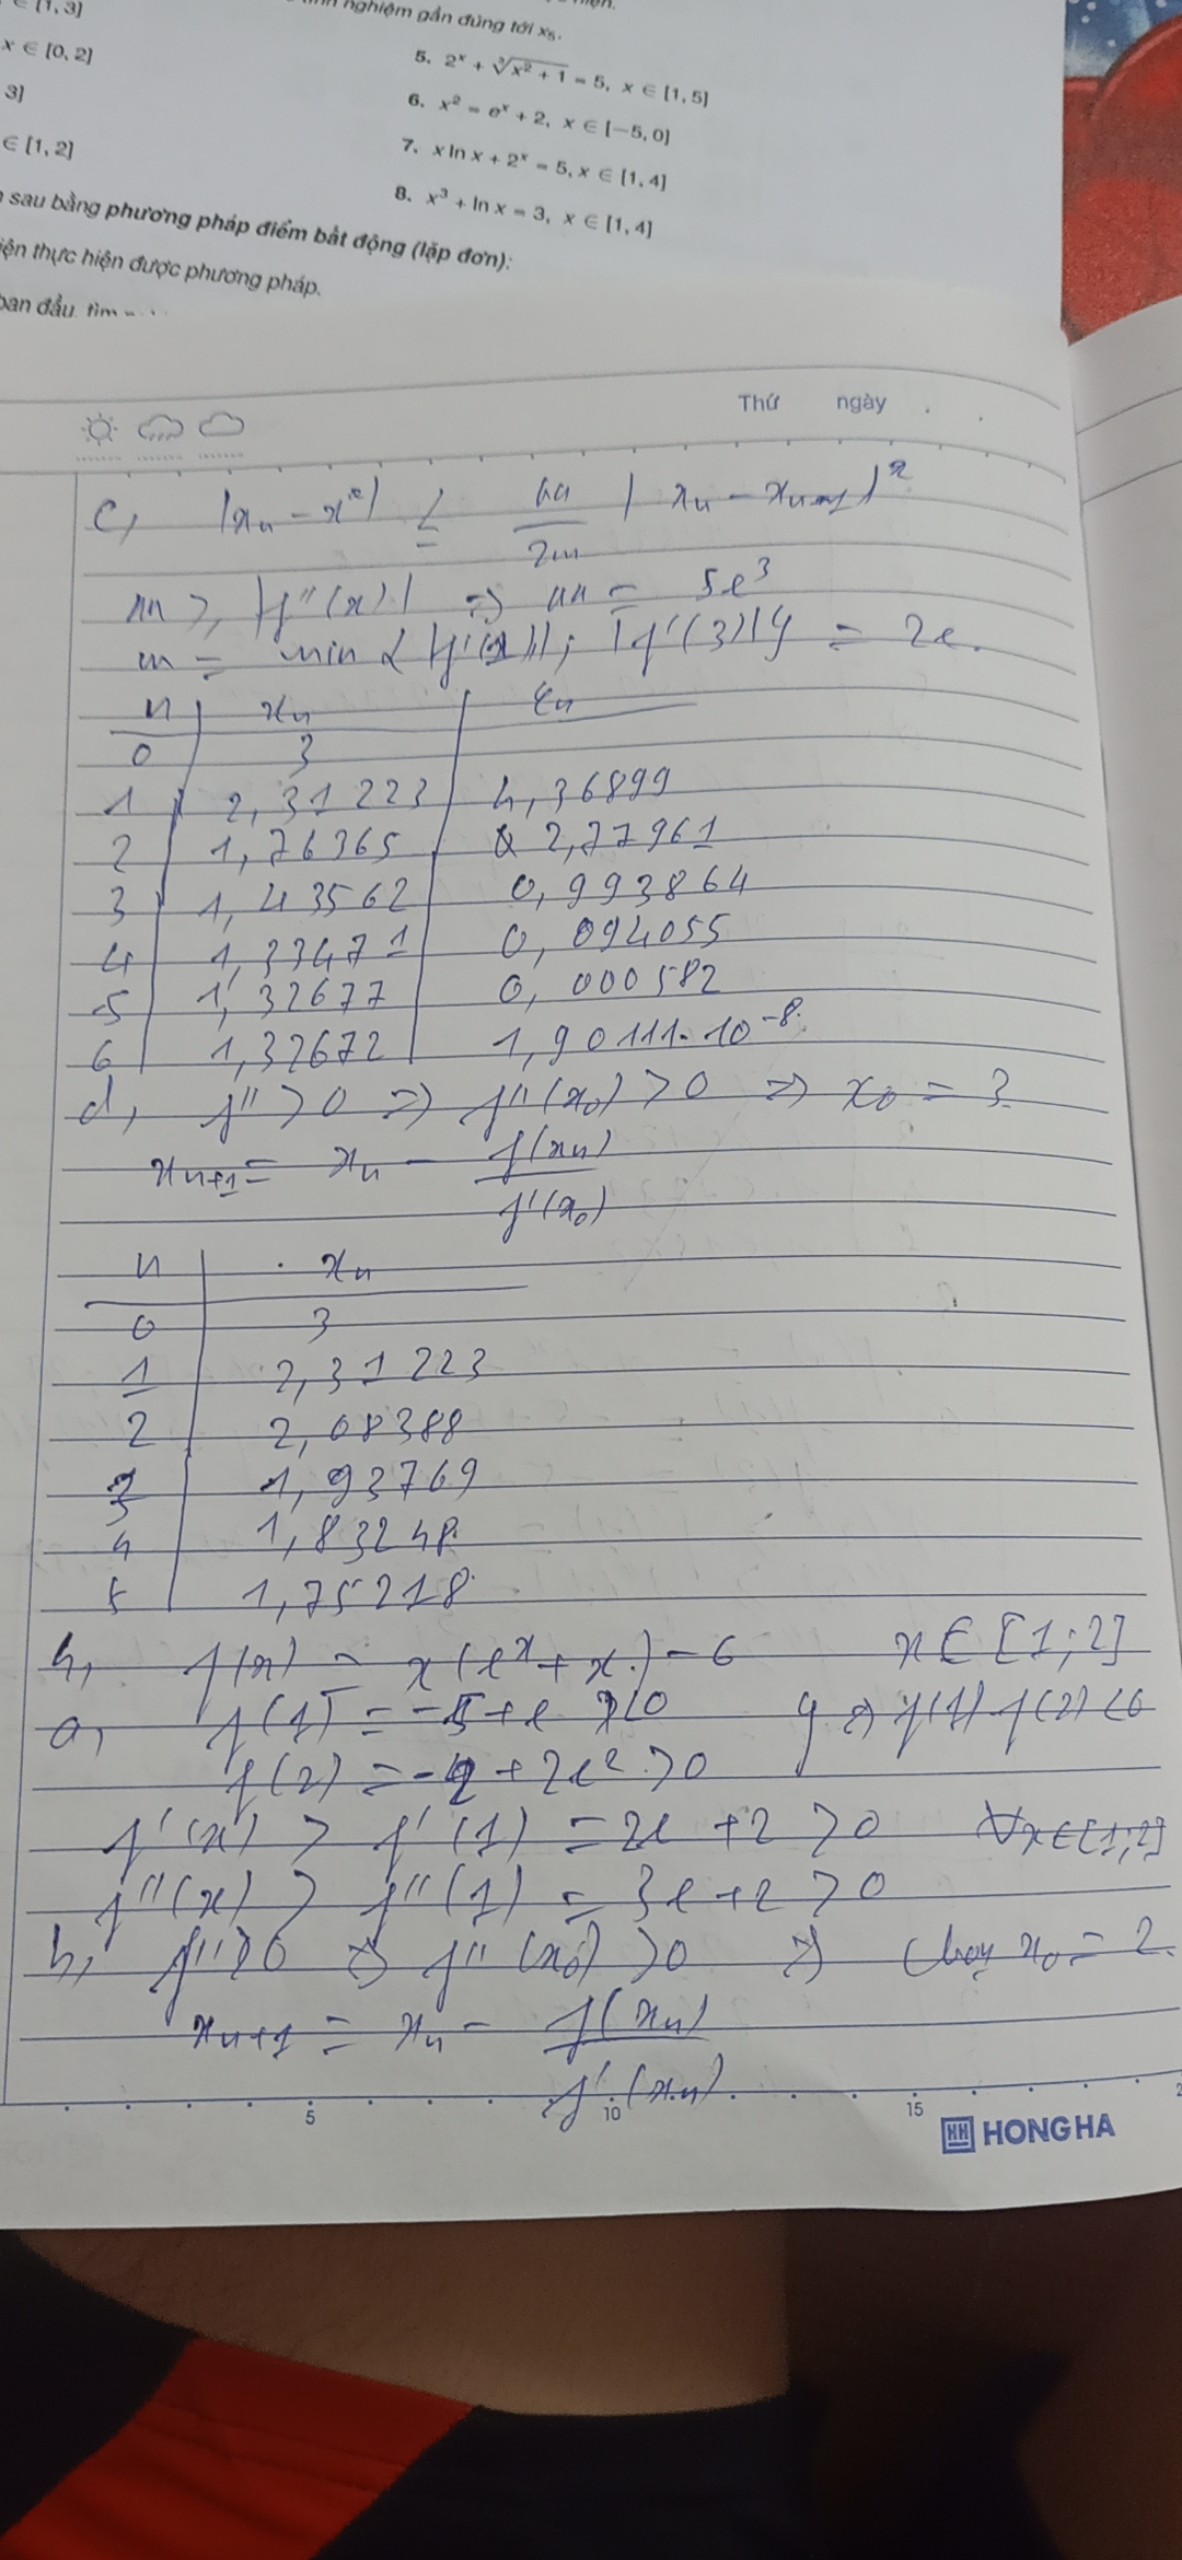 ∈ [1, 3]
x ∈ [0, 2]
3]
∈ [1, 2]
nghiệm gần đúng tới x₅.
5. 2ˣ + ∛(x² + 1) = 5, x ∈ [1, 5]
6. x² = eˣ + 2, x ∈ [−5, 0]
7. x ln x + 2ˣ = 5, x ∈ [1, 4]
8. x³ + ln x = 3, x ∈ [1, 4]
sau bằng phương pháp điểm bất động (lặp đơn):
iện thực hiện được phương pháp.
ban đầu, tìm
Thứ ngày
c, |xₙ − x*| ≤ M/2m |xₙ − xₙ₋₁|²
M ≥ |f''(x)| ⇒ M = 5e³
m = min {|f'(1)|; |f'(3)|} = 2e.
n xₙ εₙ
0 3
1 2,31223 4,36899
2 1,76365 2,77961
3 1,43562 0,993864
4 1,33471 0,094055
5 1,32677 0,000582
6 1,32672 1,90111.10⁻⁸
d, f'' > 0 ⇒ f''(x₀) > 0 ⇒ x₀ = 3
xₙ₊₁ = xₙ − f(xₙ)/f'(x₀)
n xₙ
0 3
1 2,31223
2 2,08388
3 1,93769
4 1,83248
5 1,75218
4, f(x) = x(eˣ + x) − 6 x ∈ [1; 2]
a, f(1) = −5 + e < 0 } ⇒ f(1) f(2) < 0
f(2) = −2 + 2e² > 0
f'(x) > f'(1) = 2e + 2 > 0 ∀x ∈ [1; 2]
f''(x) > f''(1) = 3e + 2 > 0
b, f'' > 0 ⇒ f''(x₀) > 0 ⇒ chọn x₀ = 2.
xₙ₊₁ = xₙ − f(xₙ)/f'(xₙ)
5 10 15
HH HONG HA